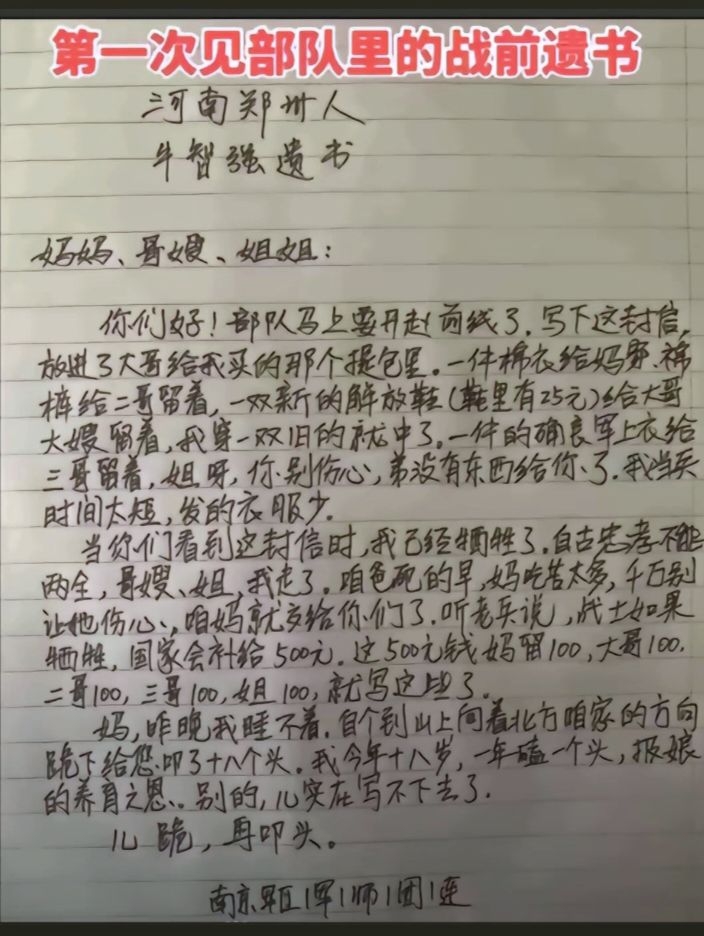 第一次见部队里的战前遗书
河南郑州人
牛智强遗书
妈妈、哥嫂、姐姐：
你们好！部队马上要开赴前线了．写下这封信，
放进了大哥给我买的那个提包里．一件棉衣给妈穿、棉
裤给二哥留着，一双新的解放鞋(鞋里有25元)给大哥
大嫂留着，我穿一双旧的就中了．一件的确良军上衣给
三哥留着，姐呀，你别伤心，弟没有东西给你了．我当兵
时间太短，发的衣服少．
当你们看到这封信时，我已经牺牲了．自古忠孝不能
两全，哥嫂、姐，我走了．咱爸死的早，妈吃苦太多，千万别
让她伤心、，咱妈就交给你们了．听老兵说，战士如果
牺牲，国家会补给500元．这500元钱妈留100，大哥100．
二哥100，三哥100，姐100，就写这些了．
妈，昨晚我睡不着．自个到山上向着北方咱家的方向
跪下给您叩了十八个头．我今年十八岁，一年磕一个头，报娘
的养育之恩．．别的，儿实在写不下去了．
儿 跪，再叩头。
南京军区1军1师1团1连